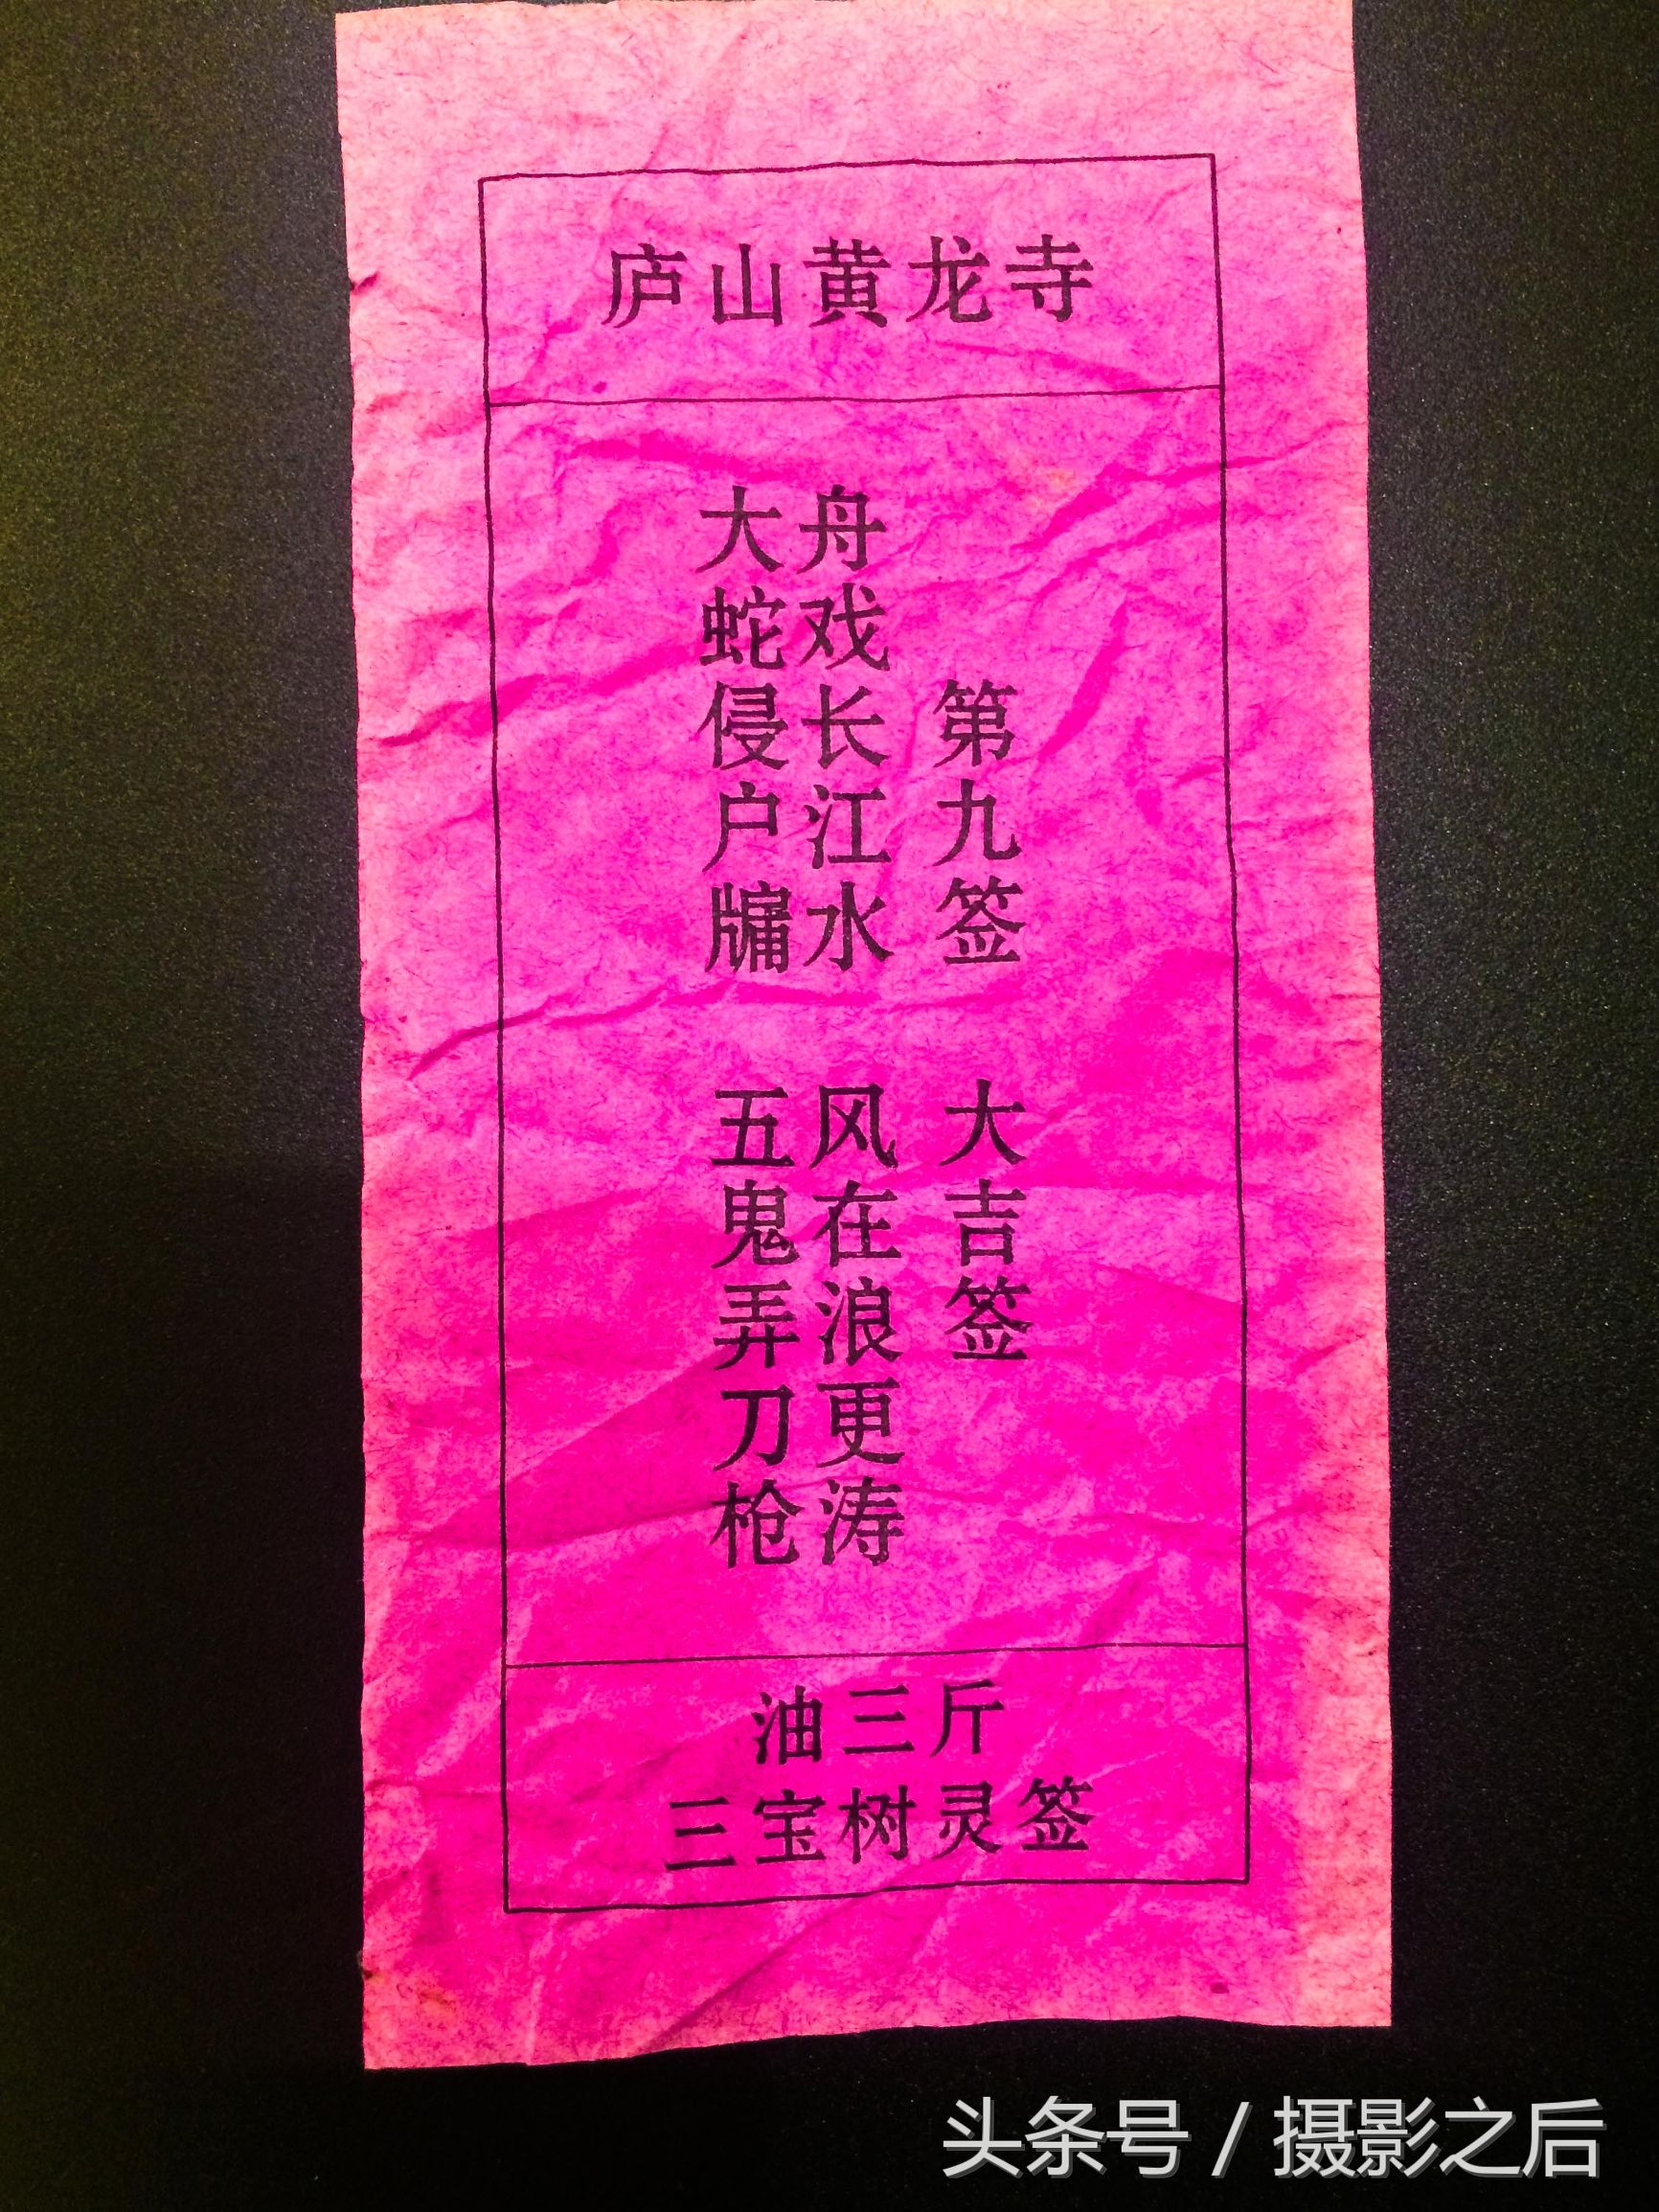 庐山黄龙寺
第九签 大吉签
舟戏长江水 风在浪更涛
大蛇侵户牖 五鬼弄刀枪
油三斤
三宝树灵签
头条号 / 摄影之后